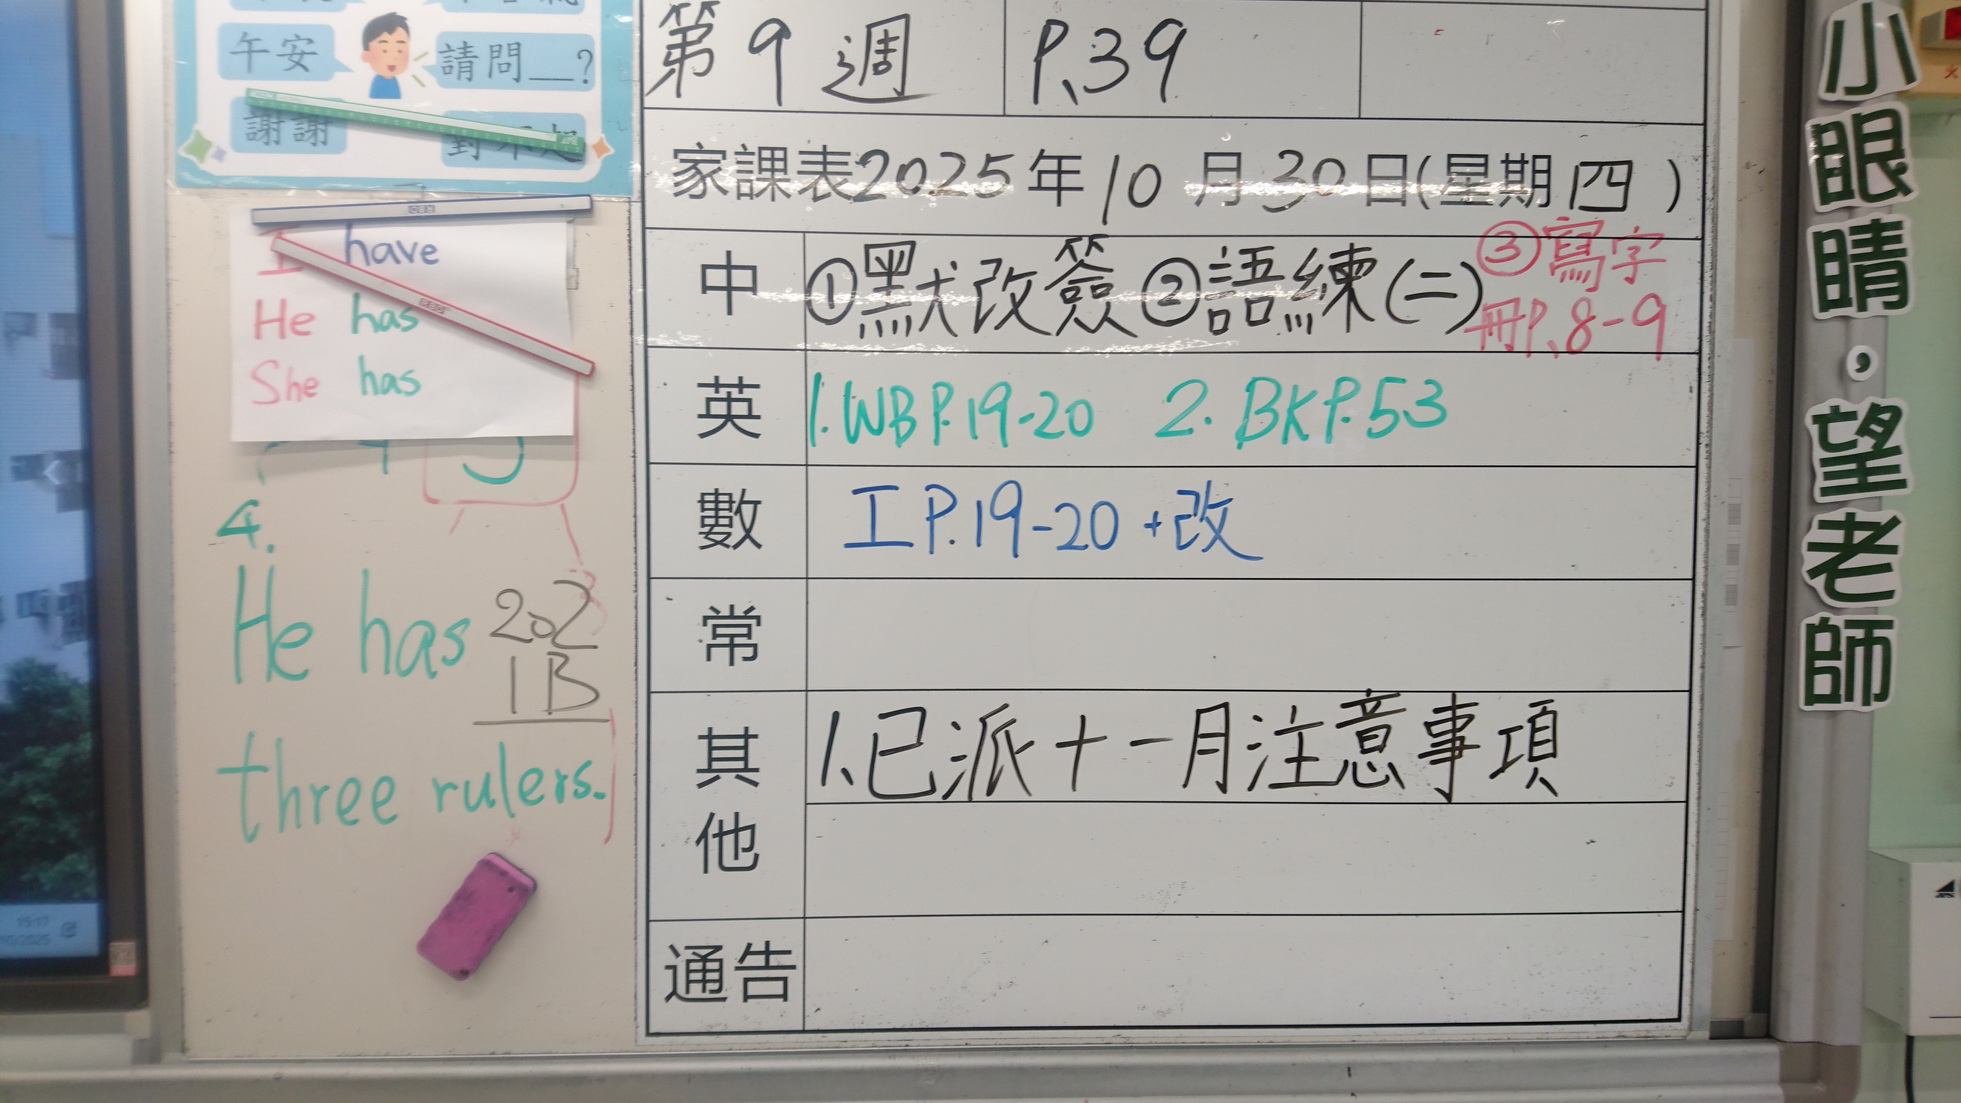 午安
請問__?
謝謝
第9週
P.39
家課表2025年10月30日(星期四)
中 ①默改簽②語練(二)③寫字
冊P.8-9
英 1.WB P.19-20 2.BK P.53
數 工 P.19-20+改
常
其他 1.已派十一月注意事項
通告
I have
He has
She has
4.
He has
three rulers.
202
1B
小眼睛，望老師
15:17